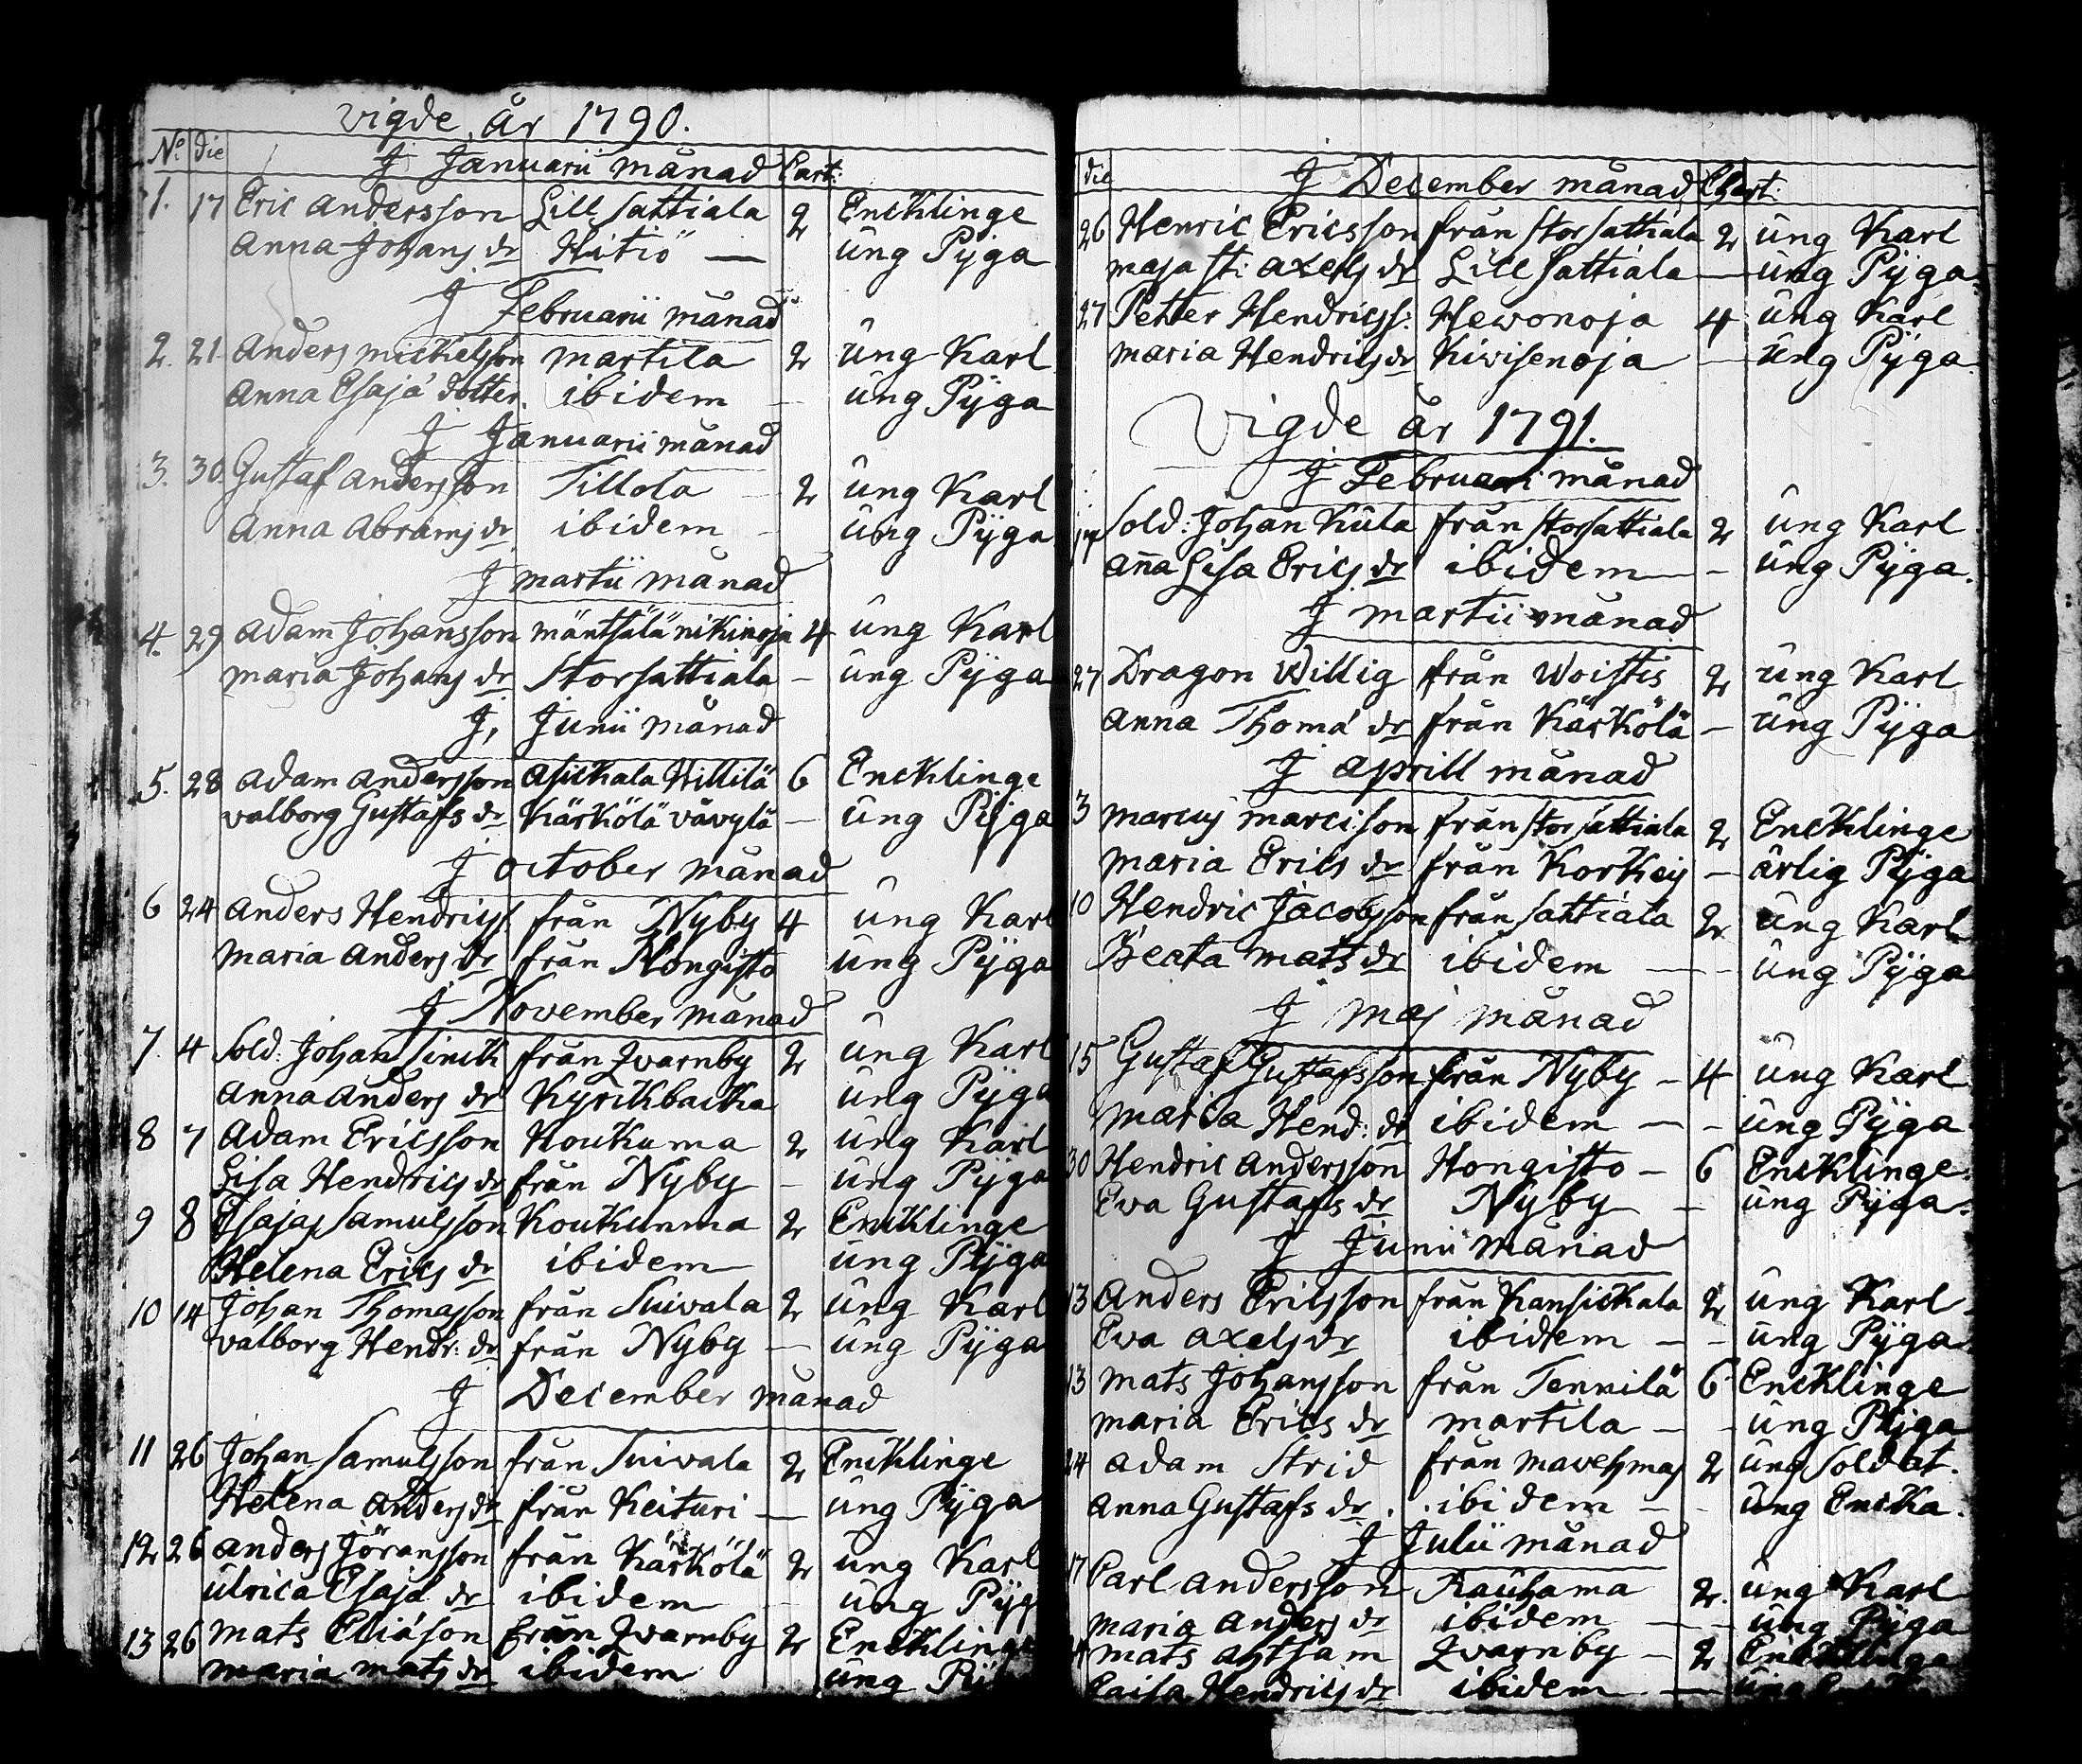 vigde år 1790.
No die
J Januarii månad Cart:
1. 17 Eric andersson Lill sattiala 2 Encklinge
Anna Johansdr Hitiö — ung Pÿga
J Februarii månad
2. 21 Anders mickelsson martila 2 ung Karl
Anna Esajæ dotter ibidem — ung Pÿga
J Januarii månad
3. 30 Gustaf andersson Tillola — 2 ung Karl
Anna Abramsdr ibidem - ung Pÿga
J martii månad
4. 29 Adam Johansson mäntsälä nikinoja 4 ung Karl
maria Johansdr Storsattiala - ung Pÿga
J, Junii månad
5. 28 Adam andersson asickala Hillilä 6 Encklinge
valborg Gustafsdr Kärkölä vävylä — ung Pÿga
J october månad
6 24 anders Hendricss. från Nyby 4 ung Karl
maria andersdr från Hongisto ung Pÿga
J November månad
7. 4 Sold: Johan Sinck från Qvarnby 2 ung Karl
anna andersdr Kyrckbacka ung Pÿga
8 7 Adam Ericsson Koukuma 2 ung Karl
Lisa Hendricsdr från Nyby - ung Pÿga
9 8 Esajas Samulsson Koukunma 2 Encklinge
Helena Ericsdr ibidem ung Pÿga
10 14 Johan Thomasson från Suivala 2 ung Karl
valborg Hendr: dr från Nyby — ung Pÿga
J December månad
11 26 Johan Samulsson från Suivala 2 Encklinge
Helena andersdr från Keituri — ung Pÿga
12 26 anders Jöransson från Kärkölä 2 ung Karl
ulrica Esajæ dr ibidem ung Pÿg
13 26 mats Eliäson från Qvarnby 2 Encklinge
maria matsdr ibidem ung Pÿ
die J December månad Chart:
26 Henric Ericsson från storsattiala 2 ung Karl
maja st: axelsdr Lill sattiala — ung Pÿga
27 Petter Hendricss: Hewonoja 4 ung Karl
maria Hendricsdr Kiwisenoja — ung Pÿga
Vigde år 1791.
J Februari månad
Sold: Johan Kula från storsattiala 2 ung Karl
aña Lisa Ericsdr ibidem — ung Pÿga.
J martii månad
27 Dragon Willig från Woistis 2 ung Karl
anna Thomæ dr från Kärkölä — ung Pÿga
J aprill månad
3 marcus marcison från storsattiala 2 Encklinge
maria Erics dr från Korkeis — ärlig Pÿga
10 Hendric Jacobsson från sattiala 2 ung Karl
Beata matsdr ibidem — ung Pÿga
J maj månad
15 Gustaf Gustafsson från Nyby — 4 ung Karl
maria Hend: dr ibidem — ung Pÿga
30 Hendric andersson Hongisto — 6 Encklinge.
Eva Gustafsdr Nyby — ung Pÿga.
J Junii månad
13 anders Ericsson från Kansickala 2 ung Karl
Eva axelsdr ibidem — ung Pÿga
13 mats Johansson från Tennilä 6 Encklinge
maria Ericsdr martila — ung Pÿga
24 adam Strid från mavehmas 2 ung soldat.
anna Gustafsdr. ibidem — ung Encka.
J Julii månad
17 Carl andersson Rauhama 2. ung Karl
maria andersdr ibidem — ung Pÿga
mats Qvarnby — 2 Encklinge
Caisa Hendricsdr ibidem —